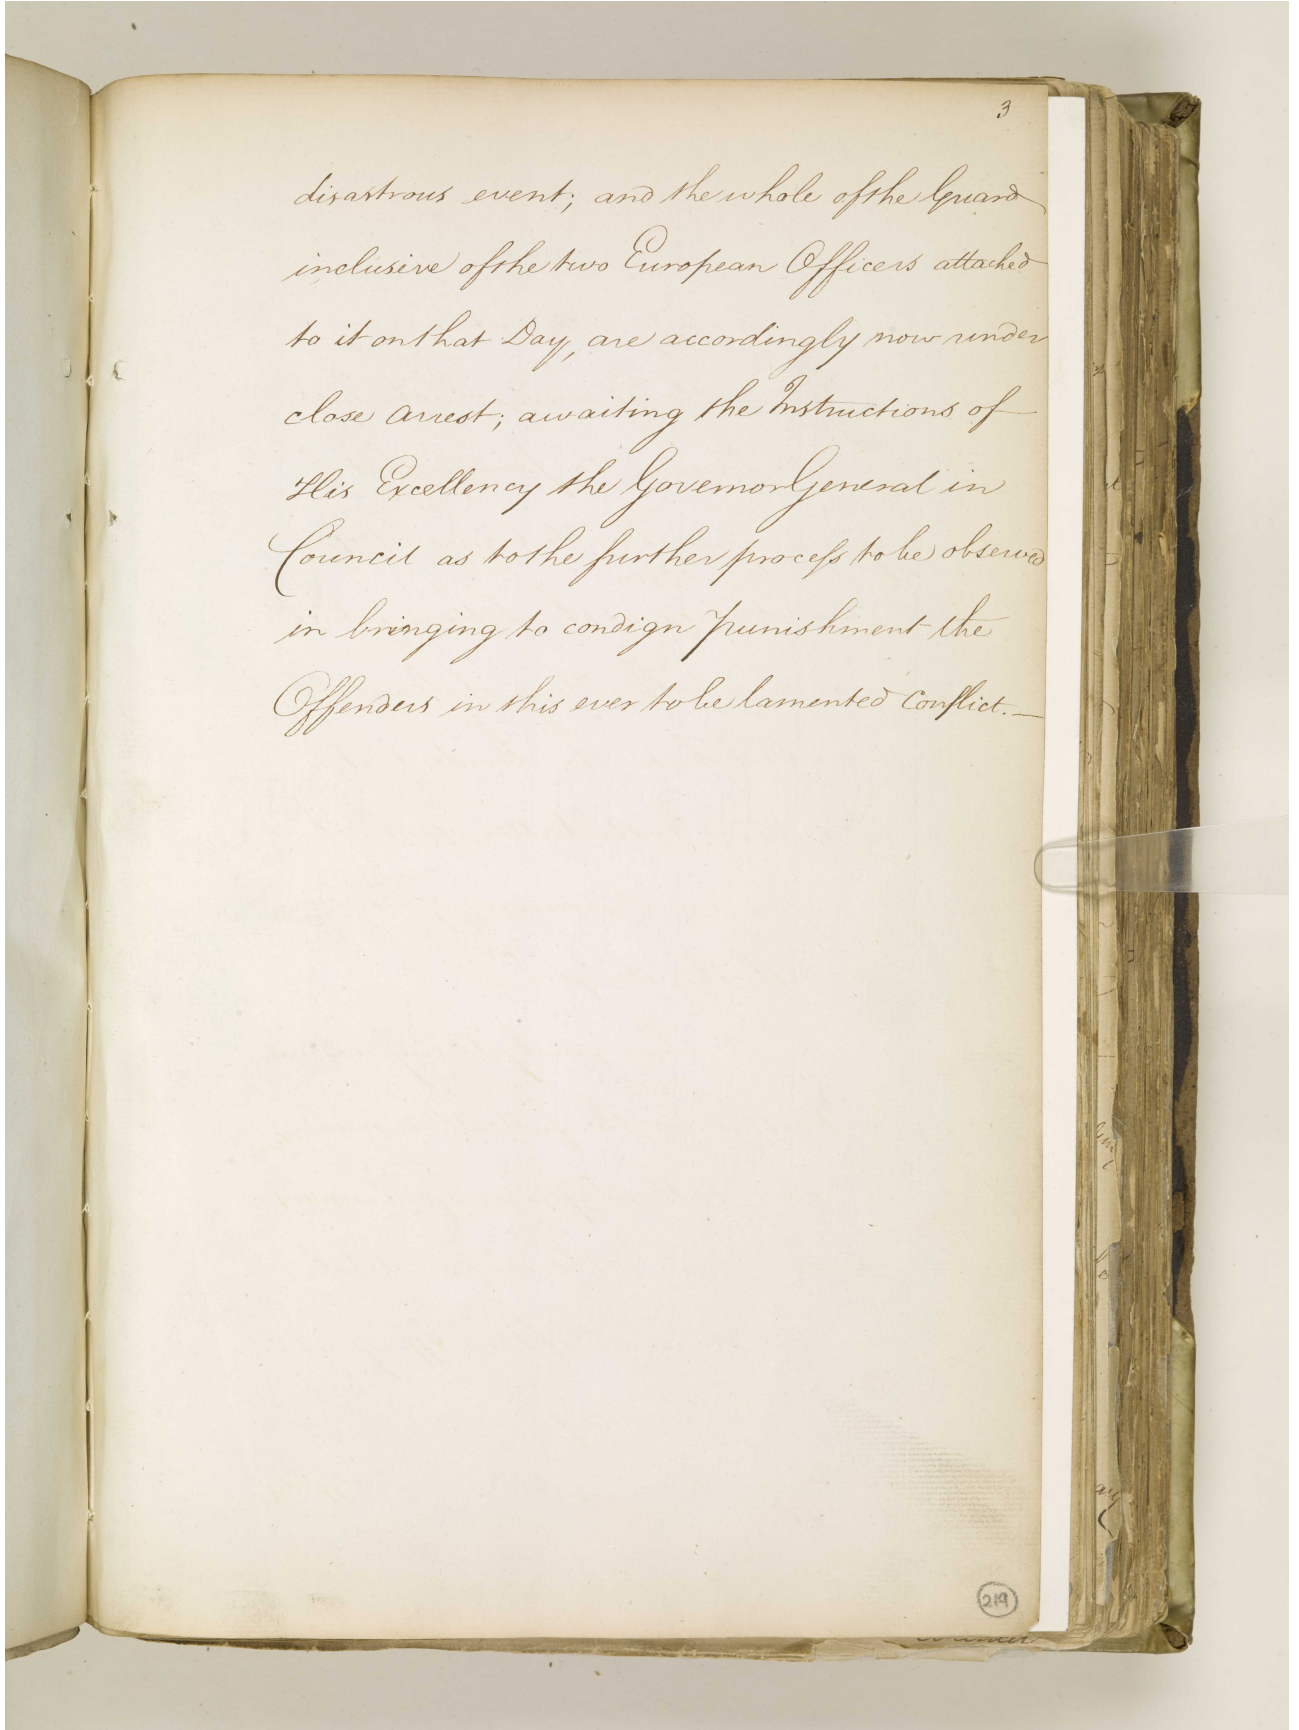 3
disastrous event; and the whole of the Guard
inclusive of the two European Officers attached
to it on that Day, are accordingly now under
close Arrest; awaiting the Instructions of
His Excellency the Governor General in
Council as to the further process to be observed
in bringing to condign punishment the
Offenders in this ever to be lamented Conflict. —
219